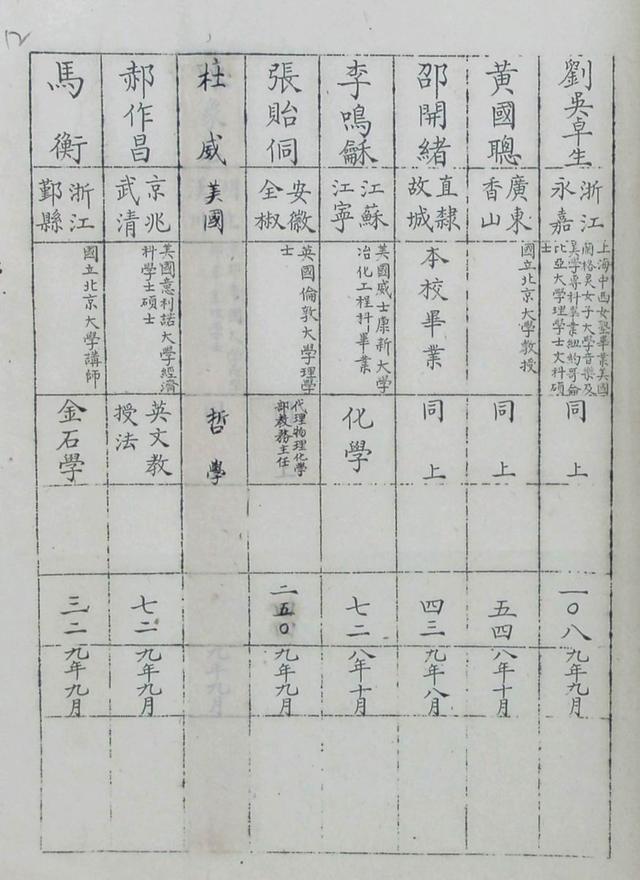 12
劉吳卓生
浙江
永嘉
上海中西女塾畢業美國
蘭格美女子大學音樂及
美學專科畢業紐約哥倫
比亞大學理學士文科碩
士
同上
一〇八
九年九月
黃國聰
廣東
香山
國立北京大學教授
同上
五四
八年十月
邵開緒
直隸
故城
本校畢業
同上
四三
九年八月
李鳴龢
江蘇
江寧
美國威士康新大學
冶化工程科畢業
化學
七二
八年十月
張貽侗
安徽
全椒
英國倫敦大學理學
士
代理物理化學
部教務主任
二五〇
九年九月
杜威
美國
哲學
九年九月
郝作昌
京兆
武清
美國意利諾大學經濟
科學士碩士
英文教
授法
七二
九年九月
馬衡
浙江
鄞縣
國立北京大學講師
金石學
三二
九年九月